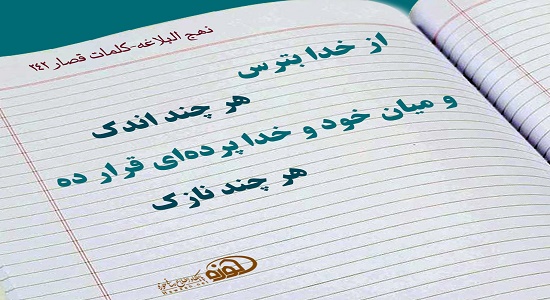 نهج البلاغه-کلمات قصار ۲۴۲
از خدا بترس
هر چند اندک
و میان خود و خدا پرده‌ای قرار ده
هر چند نازک
حوزه